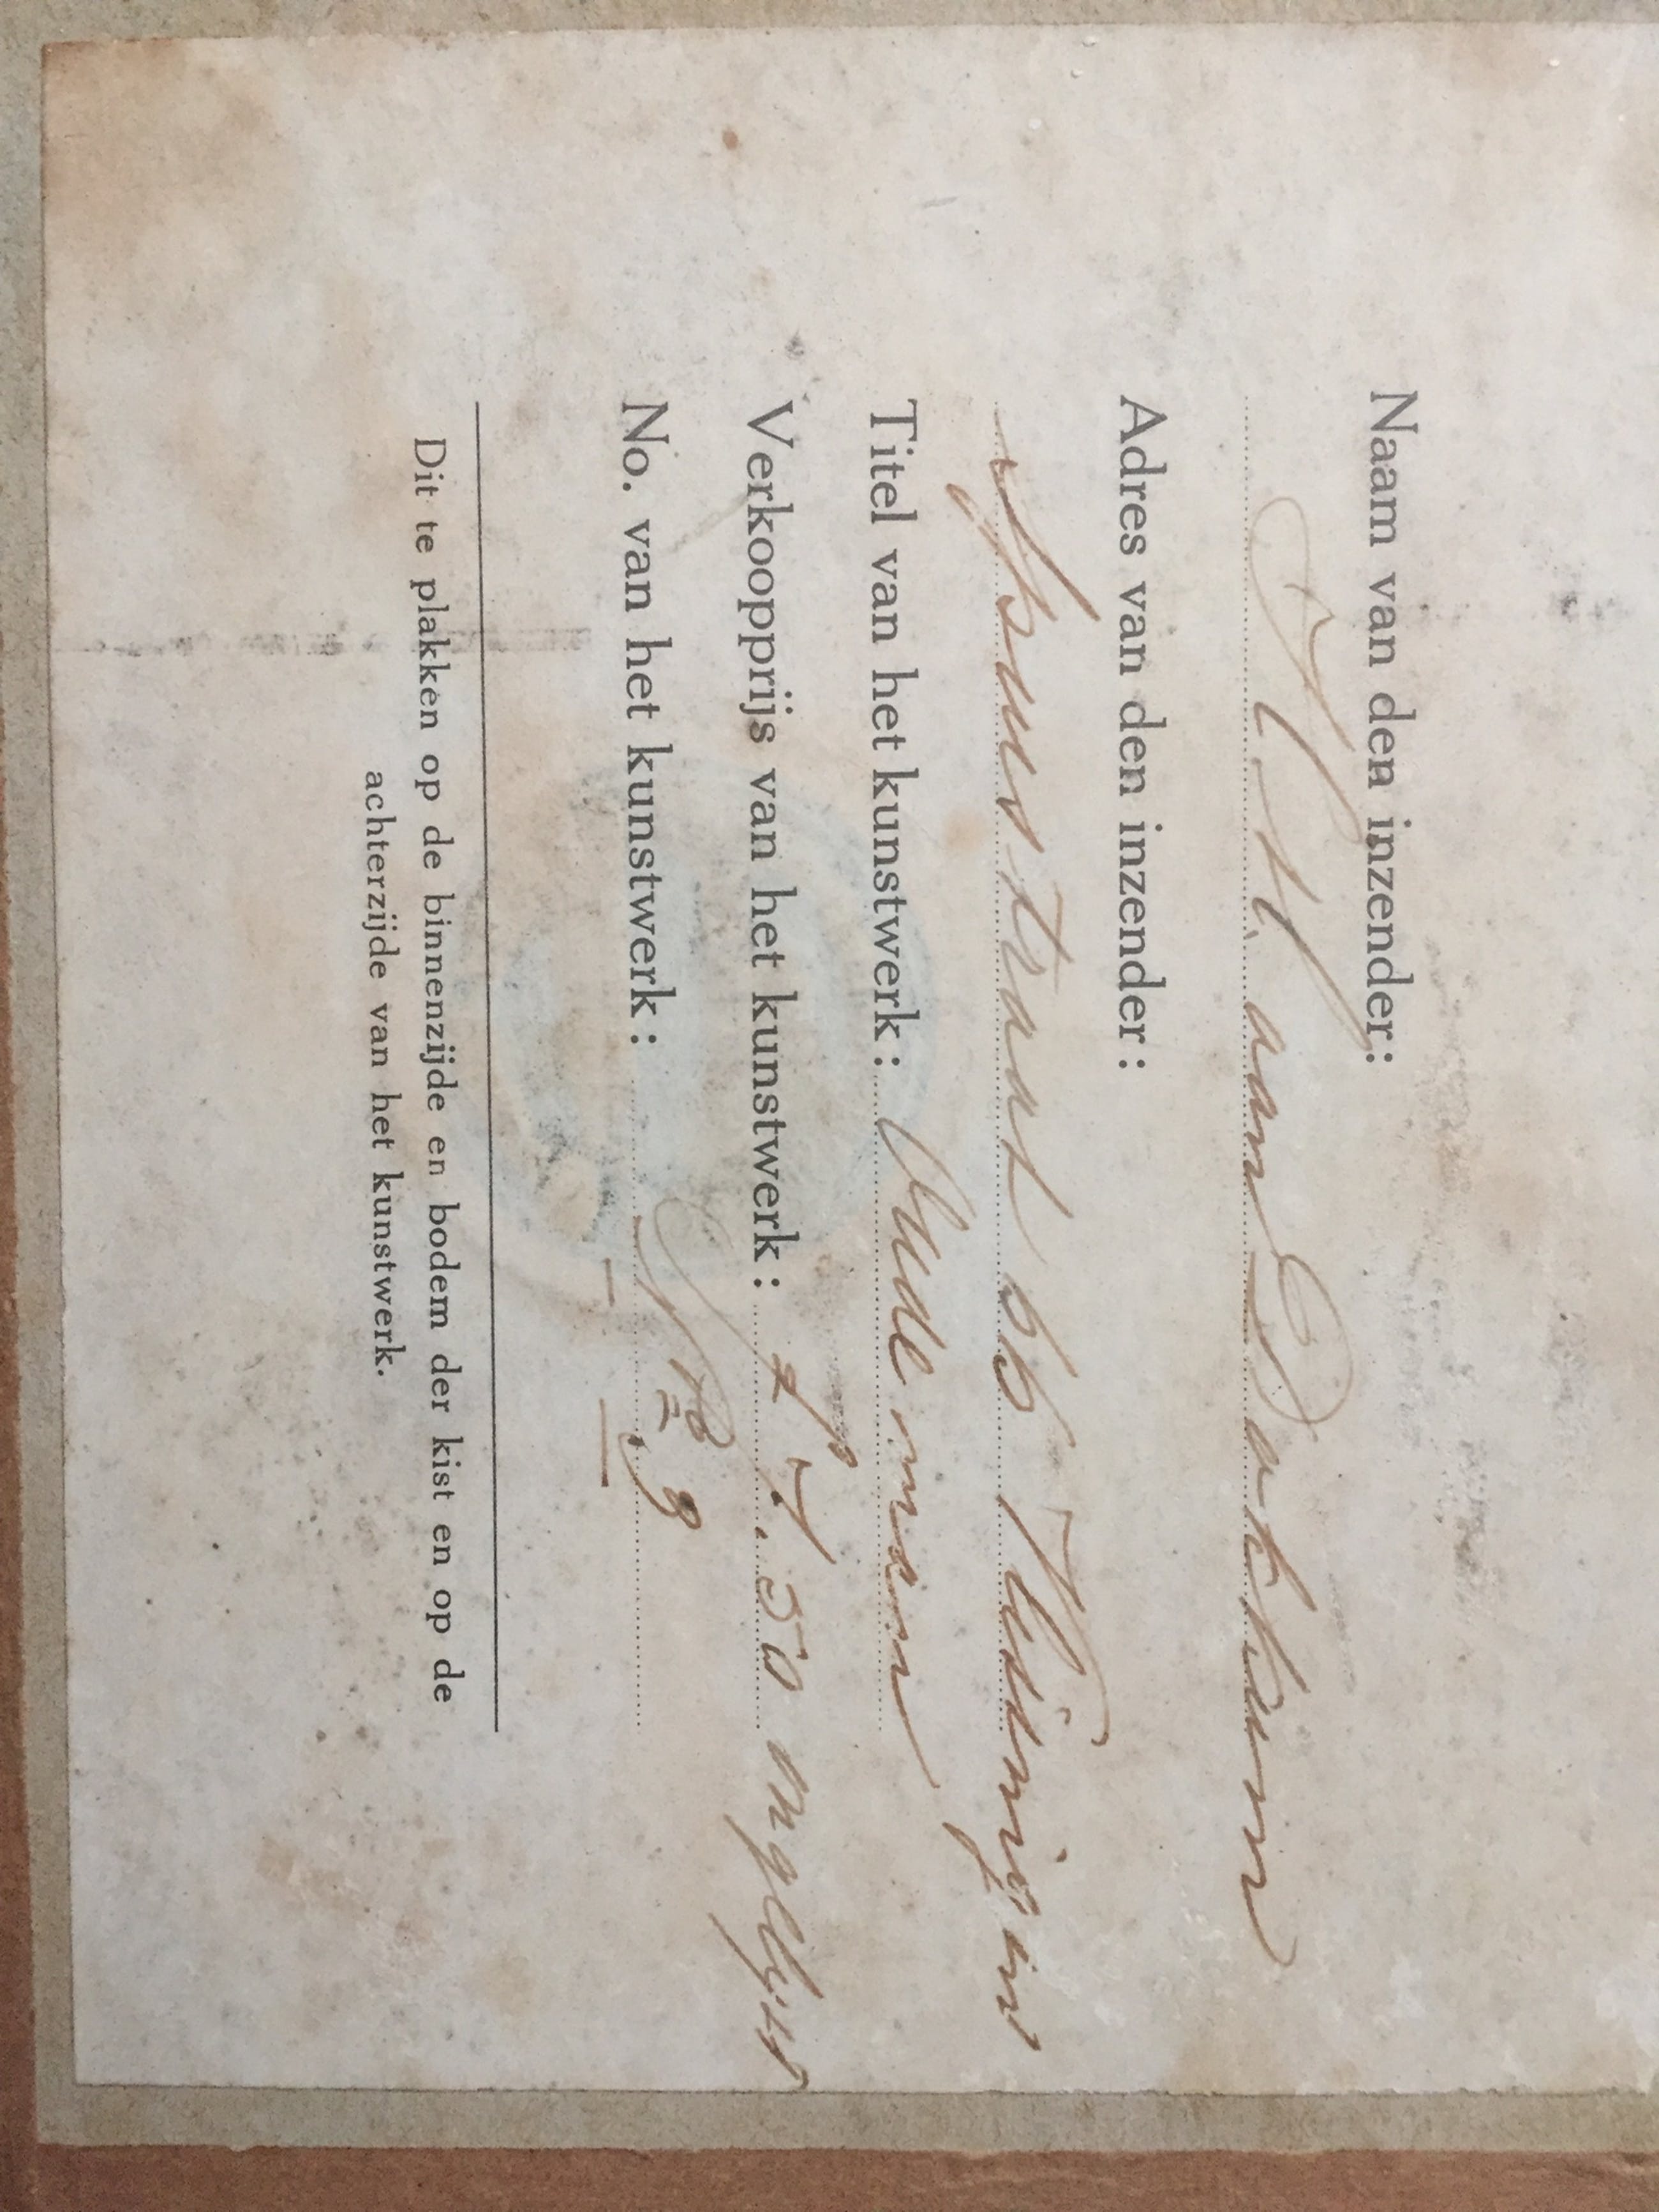 Naam van den inzender:
H. van Dokkum
Adres van den inzender:
Spuistraat 66 Vlissingen
Titel van het kunstwerk: Oude
Verkoopprijs van het kunstwerk: f 7.50
No. van het kunstwerk: No. 3
Dit te plakken op de binnenzijde en bodem der kist en op de
achterzijde van het kunstwerk.